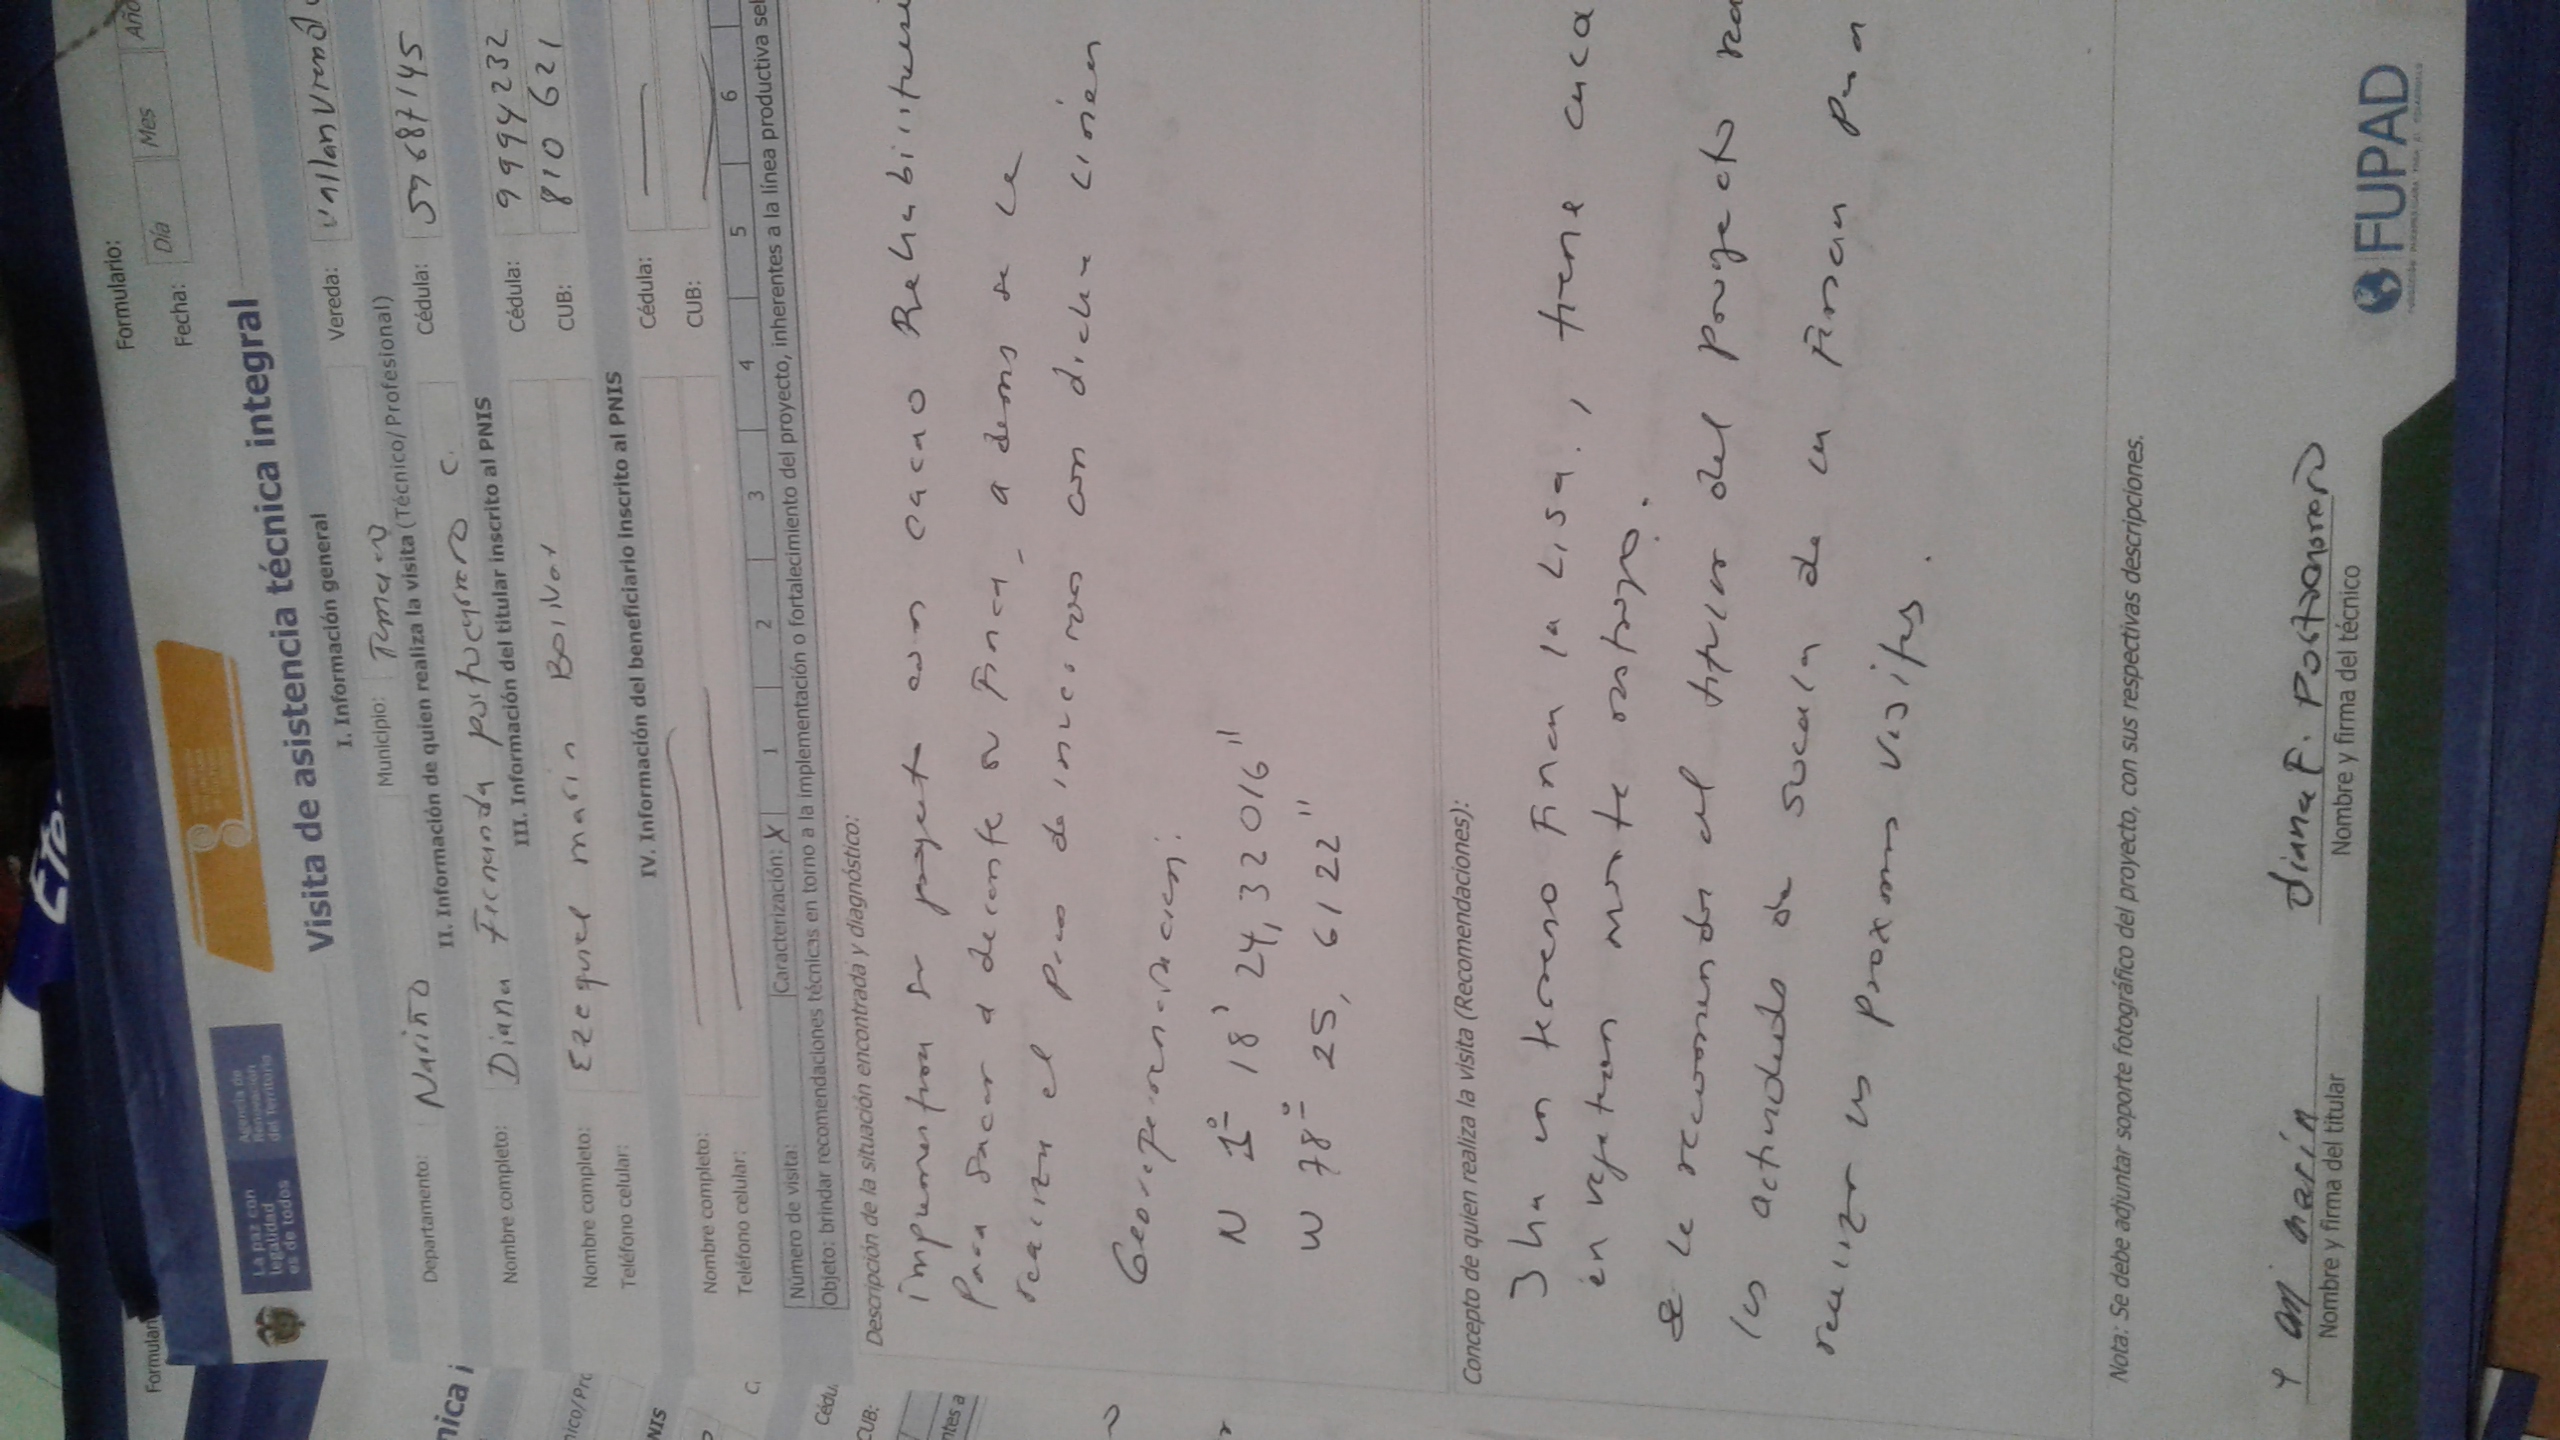 Formulario:
Fecha: Día Mes Año
La paz con legalidad es de todos
Agencia de Renovación del Territorio
Visita de asistencia técnica integral
I. Información general
Departamento: Nariño Municipio: Tumaco Vereda:
II. Información de quien realiza la visita (Técnico/Profesional)
Nombre completo: Diana Fernanda portocarrero C. Cédula: 59687145
III. Información del titular inscrito al PNIS
Nombre completo: Ezequiel marin Bolivar Cédula: 9994232
Teléfono celular: CUB: 810621
IV. Información del beneficiario inscrito al PNIS
Nombre completo: Cédula:
Teléfono celular: CUB:
Número de visita: Caracterización: X 1 2 3 4 5 6
Objeto: brindar recomendaciones técnicas en torno a la implementación o fortalecimiento del proyecto, inherentes a la línea productiva sel
Descripción de la situación encontrada y diagnóstico:
su proyecto con cacao
Para sacar a delante su Finca, a demas se le
realizo el Plan de inversion con dicha Linea
Georeferenciacion:
N 1° 18' 24,32016"
W 78° 25, 6122"
Concepto de quien realiza la visita (Recomendaciones):
3 ha en terreno Finca la Lisa, tiene cuca
en vegetacion monte rastrojo.
se le recomienda al titular del proyecto
las actividades de socala de la Finca para
realizar las proximas visitas.
Nota: Se debe adjuntar soporte fotográfico del proyecto, con sus respectivas descripciones.
marin
Nombre y firma del titular
Diana F. Portocarrero
Nombre y firma del técnico
FUPAD